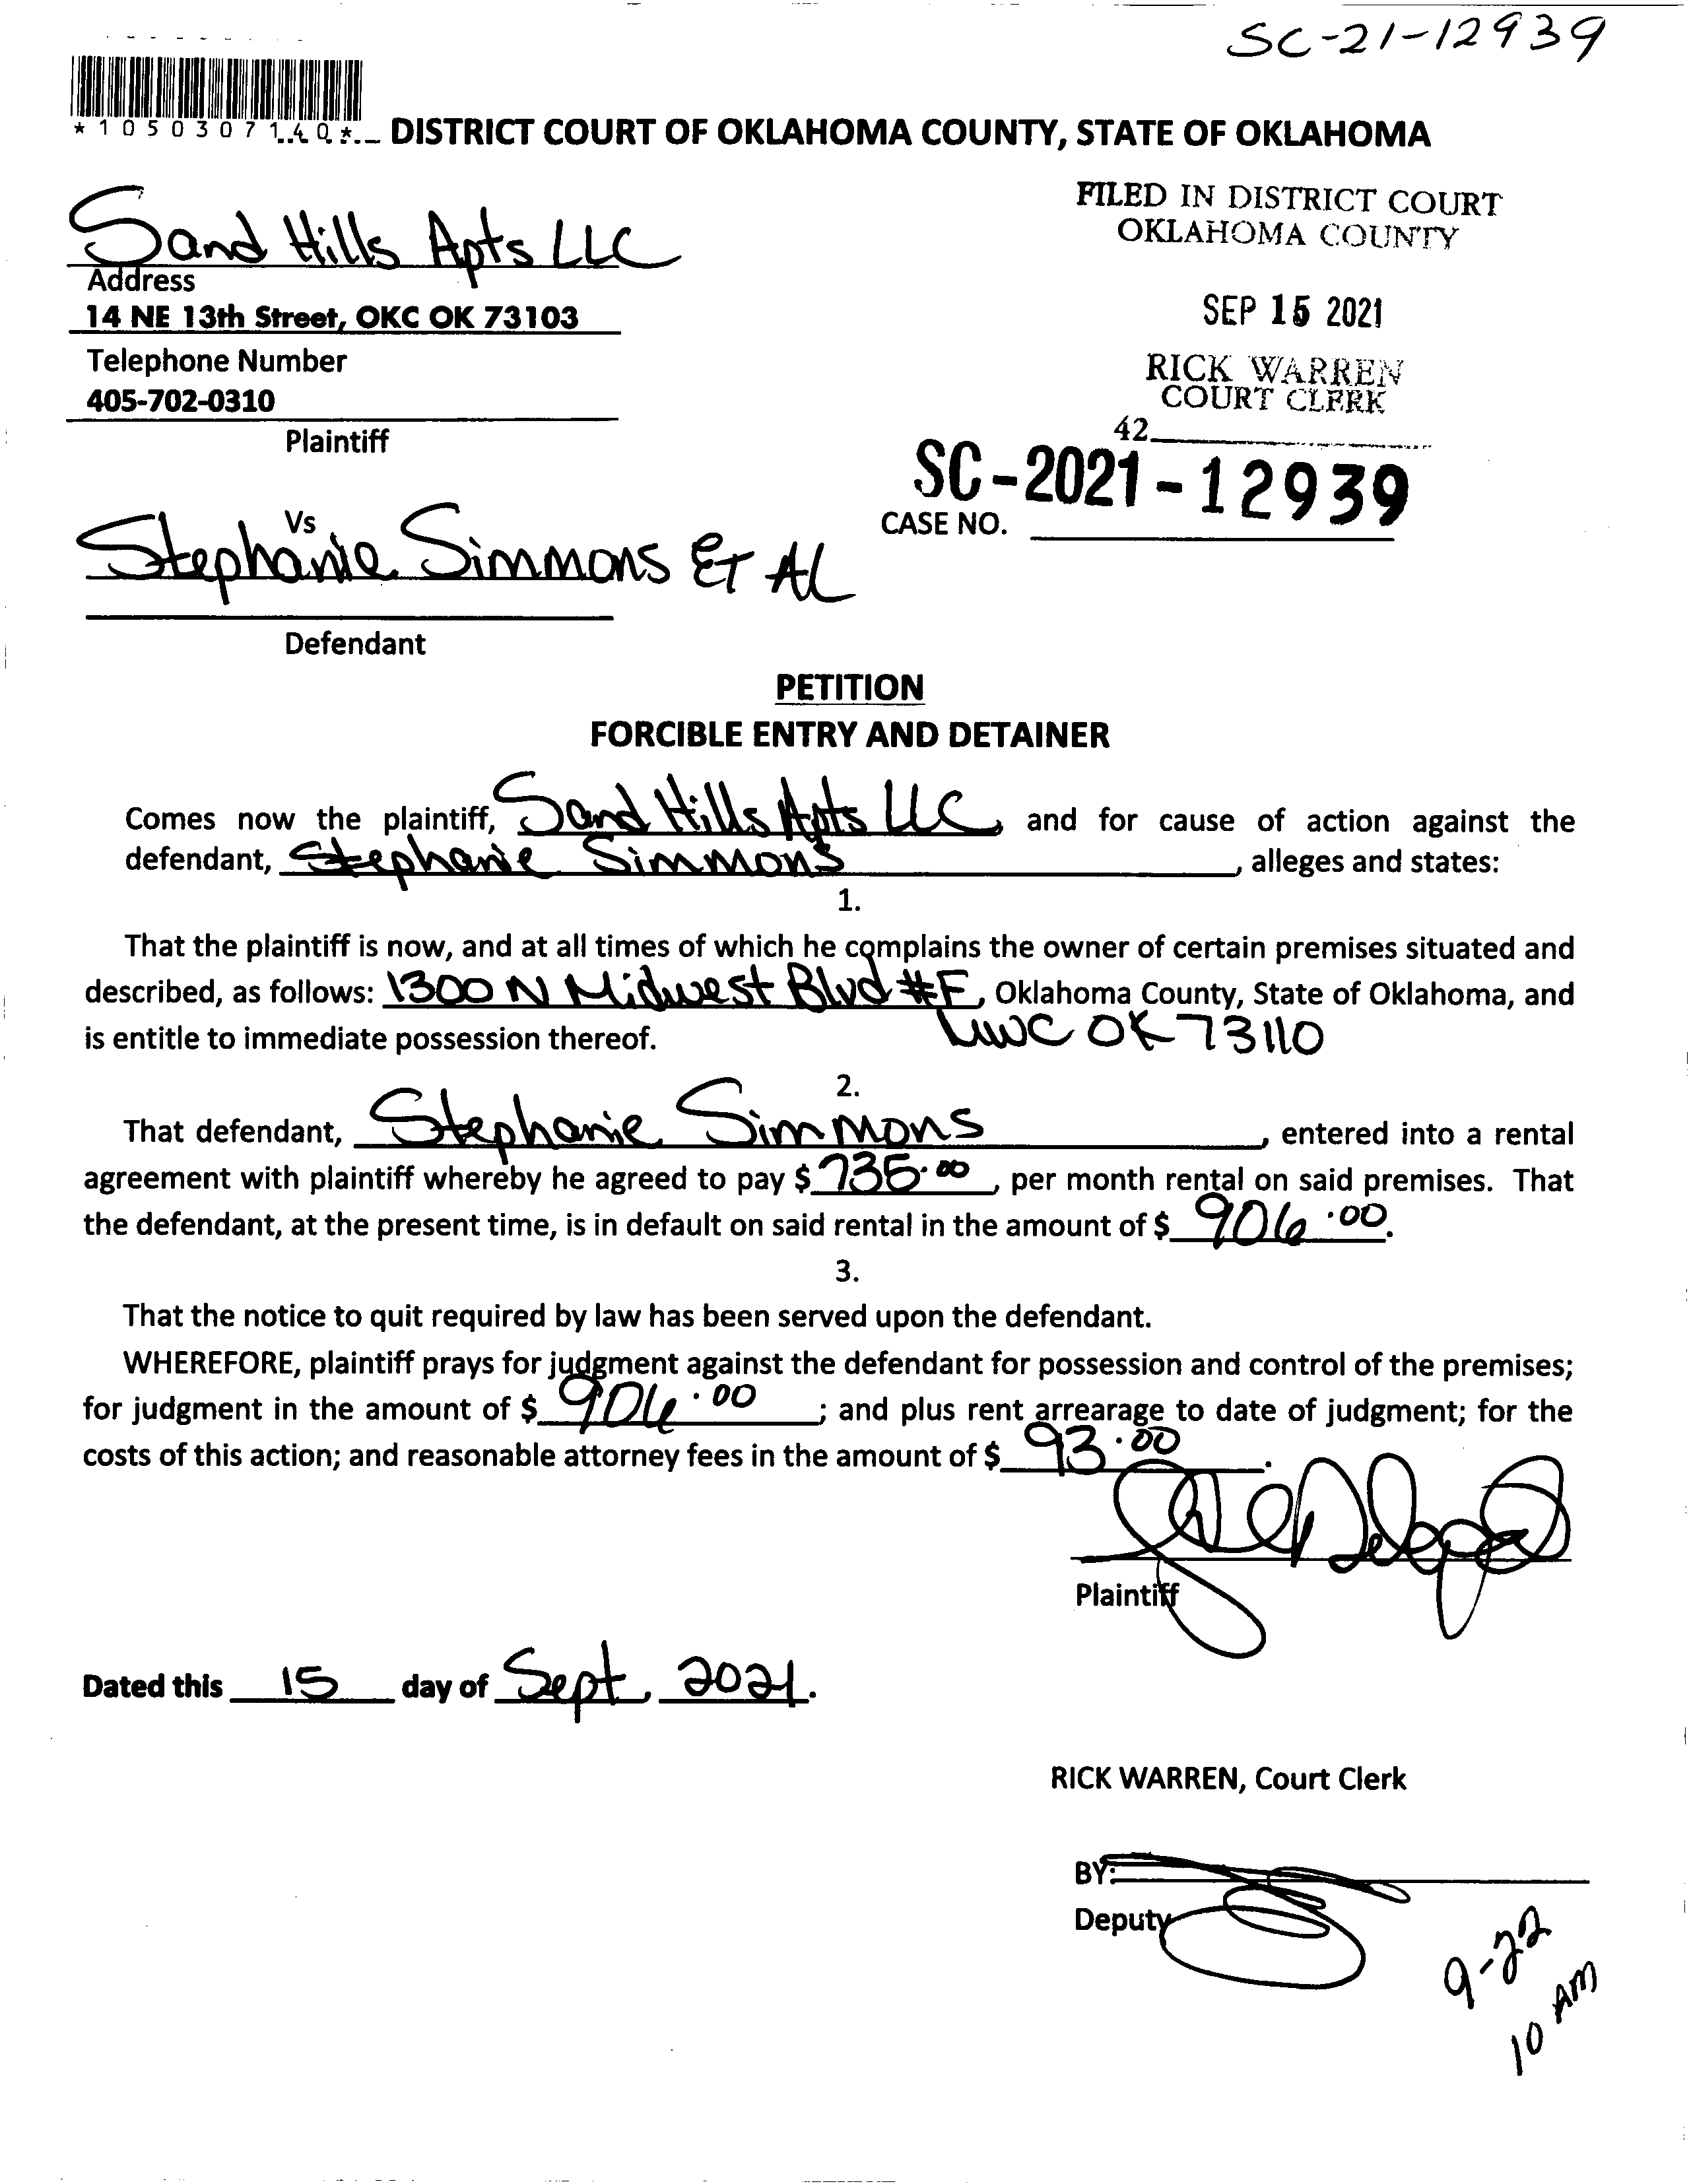 SC-21-12939
*1050307140*
DISTRICT COURT OF OKLAHOMA COUNTY, STATE OF OKLAHOMA
FILED IN DISTRICT COURT
OKLAHOMA COUNTY
Sand Hills Apts LLC
Address
14 NE 13th Street, OKC OK 73103
SEP 15 2021
Telephone Number
RICK WARREN
COURT CLERK
405-702-0310
42
Plaintiff
SC-2021-12939
CASE NO.
Vs
Stephanie Simmons ET AL
Defendant
PETITION
FORCIBLE ENTRY AND DETAINER
Comes now the plaintiff, Sand Hills Apts LLC, and for cause of action against the
defendant, Stephanie Simmons, alleges and states:
1.
That the plaintiff is now, and at all times of which he complains the owner of certain premises situated and
described, as follows: 1300 N Midwest Blvd #F, Oklahoma County, State of Oklahoma, and
is entitle to immediate possession thereof. MWC OK 73110
2.
That defendant, Stephanie Simmons, entered into a rental
agreement with plaintiff whereby he agreed to pay $735.00, per month rental on said premises. That
the defendant, at the present time, is in default on said rental in the amount of $906.00.
3.
That the notice to quit required by law has been served upon the defendant.
WHEREFORE, plaintiff prays for judgment against the defendant for possession and control of the premises;
for judgment in the amount of $906.00; and plus rent arrearage to date of judgment; for the
costs of this action; and reasonable attorney fees in the amount of $93.00.
Plaintiff
Dated this 15 day of Sept, 2021.
RICK WARREN, Court Clerk
BY:
Deputy
9-22
10 AM